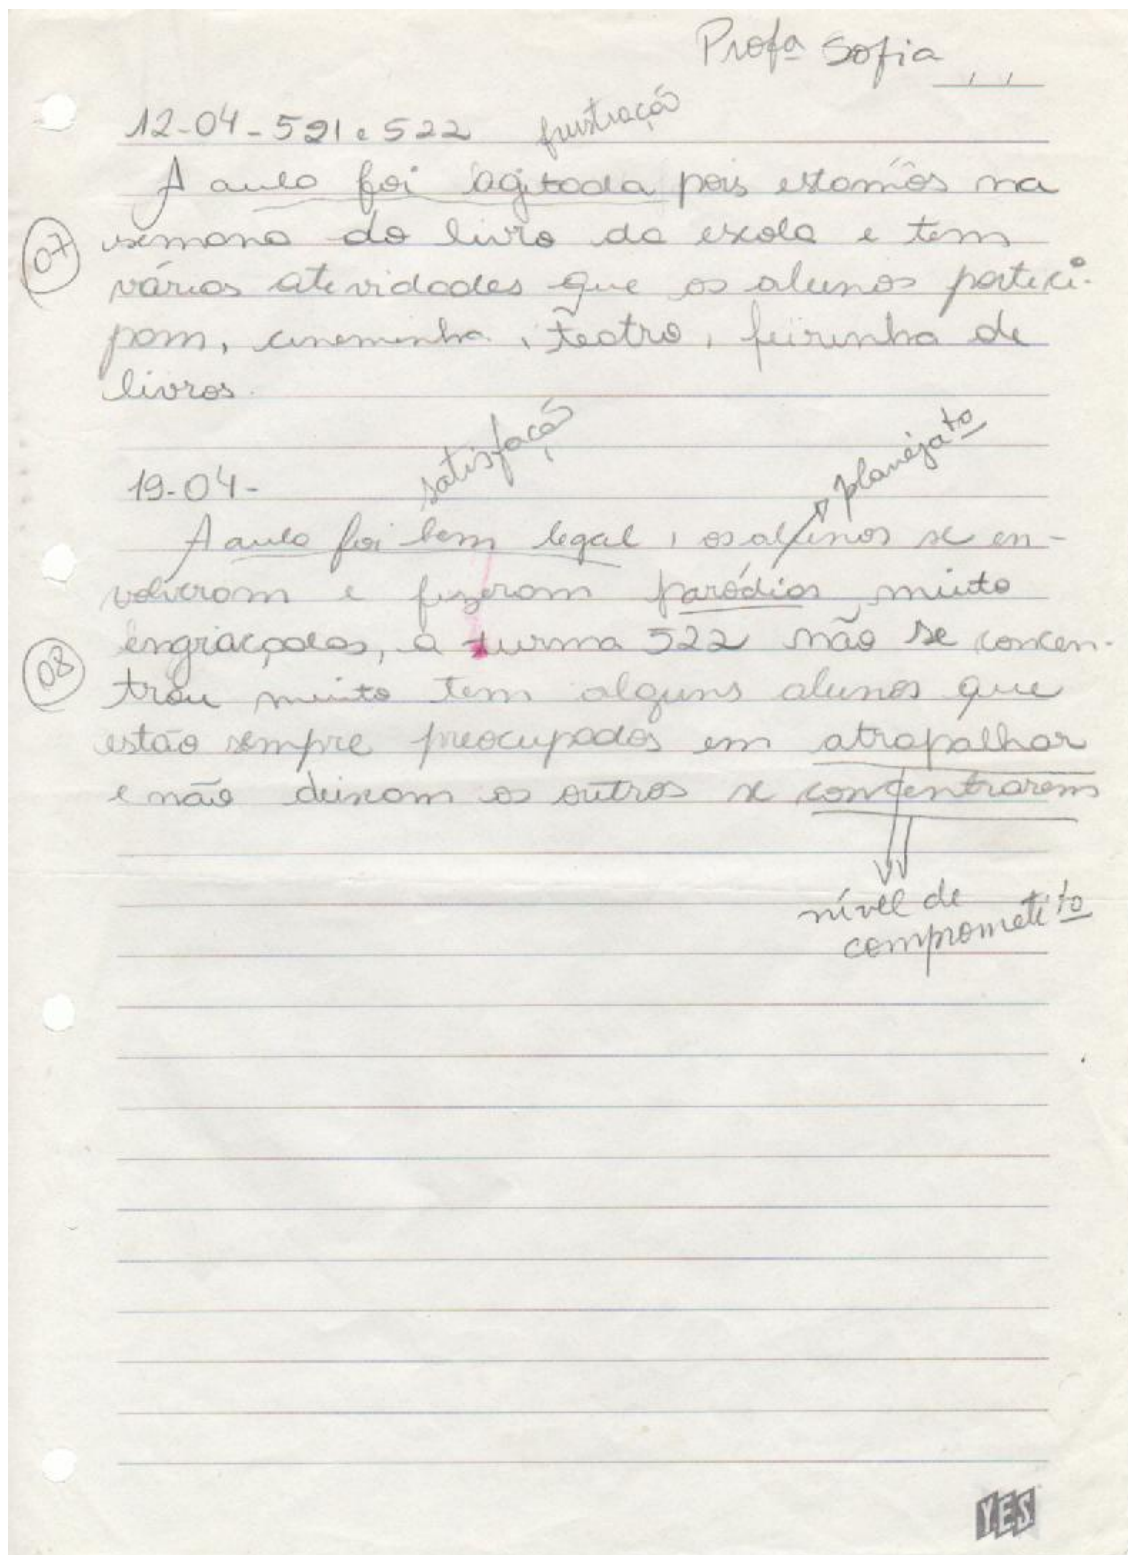 Profª Sofia
12-04-521 e 522 frustração
A aula foi agitada pois estamos na
07 semana do livro da escola e tem
várias atividades que os alunos partici-
pam, cineminha, teatro, feirinha de
livros.
satisfação
planejato
19-04-
A aula foi bem legal, os alunos se en-
volveram e fizeram paródias muito
engraçadas, a turma 522 não se concen-
08 trou muito tem alguns alunos que
estão sempre preocupados em atrapalhar
e não deixam os outros se concentrarem
nível de
comprometito
YES